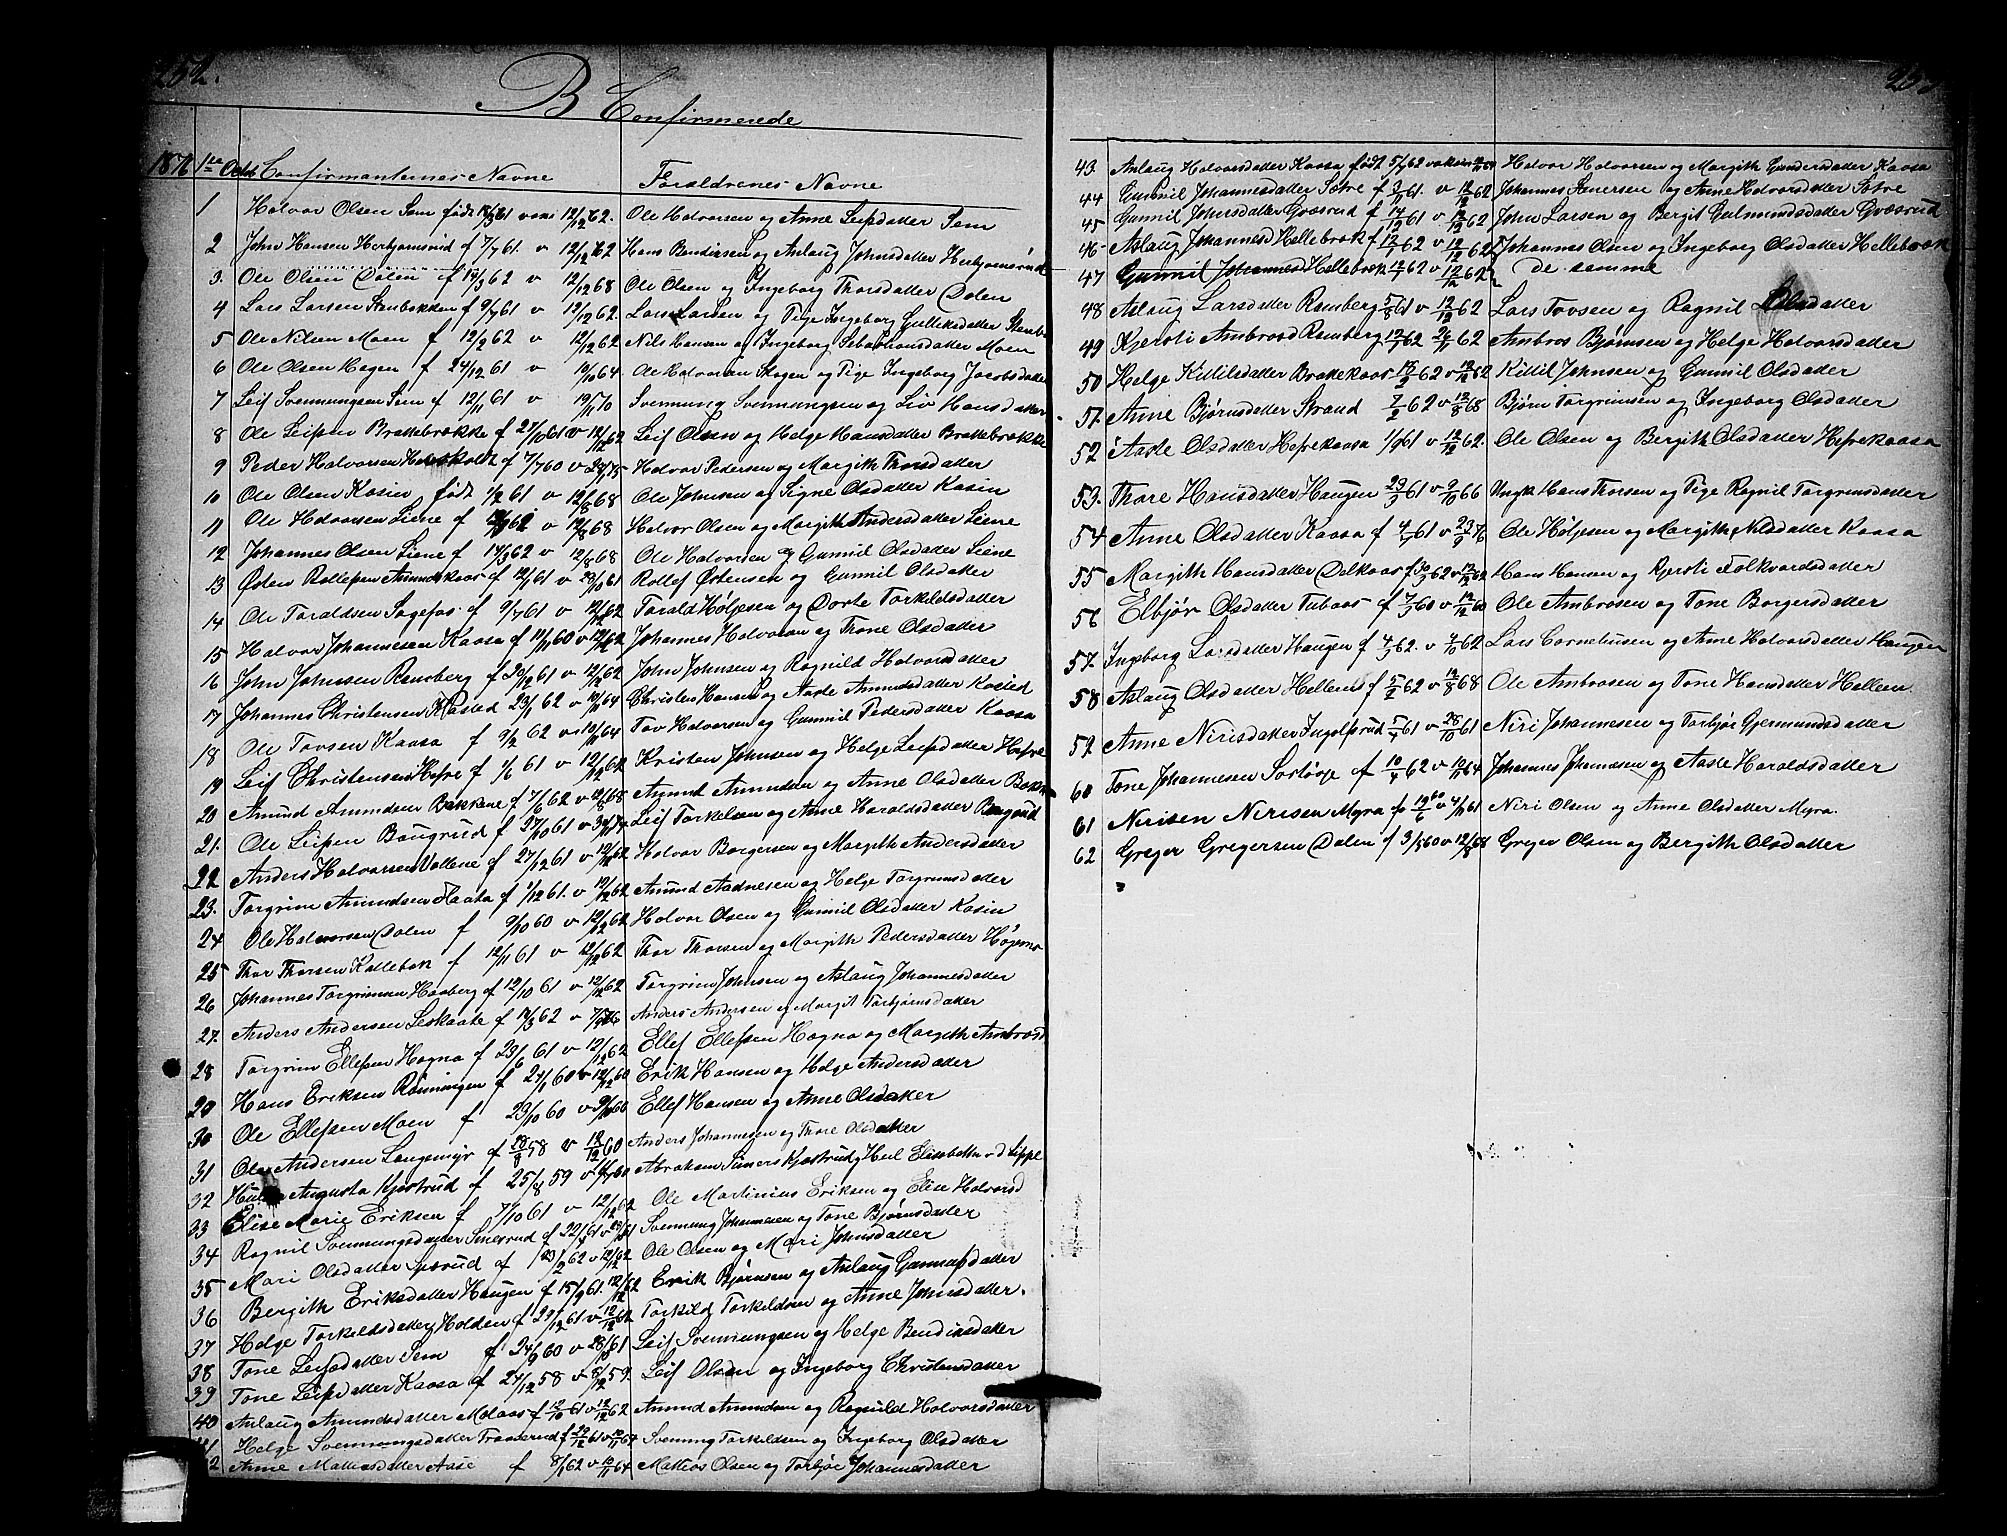 252.
B Confirmerede
1876 1ste Octb Confirmanternes Navne Forældrenes Navne
1 Halvor Olsen Sem født 61 vac 12/12 62. Ole Halvorsen og Anne Leifsdatter Sem
2 John Hansen f 7/7 61 v 12/12 62 Hans Bendixen og Aslaug Johnsdatter
3. Ole Olsen Dalen f 19/3 62 v 12/12 68 Ole Olsen og Ingeborg Thorsdatter Dalen
4 Lars Larsen f 9/7 61 v 12/12 62. Lars Larsen og Pige Ingeborg Gulliksdatter
5 Ole Nilsen Moen f 12/2 62 v 12/12 62 Nils Hansen og Ingeborg Sebastiansdatter Moen
6 Ole Olsen Hagen f 24/12 61 v 19/10 64 Ole Halvorsen Hagen og Pige Ingeborg Jacobsdatter
7 Leif Svennungsen Sem f 12/11 61 v 19/11 70 Svennung Svennungsen og Liv Hansdatter
8 Ole Leifsen Brattebrække f 27/10 61 v 12/12 62 Leif Olsen og Helge Hansdatter Brattebrække
9 Peder Halvorsen f 7/7 60 v Halvor Pedersen og Margith Thorsdatter
10 Ole Olsen Kasin født 1/2 61 v 12/8 68 Ole Johnsen og Signe Olsdatter Kasin
11 Ole Halvorsen Liene f 62 v 12/8 68 Halvor Olsen og Margith Andersdatter Liene
12 Johannes Olsen Liene f 14/3 62 v 12/8 68 Ole Halvorsen og Gunnil Olsdatter Liene
13 Østen Rollefsen f 12/1 61 v Rollef Østensen og Gunnil Olsdatter
14 Ole Taraldsen Sagefos f 9/7 61 v 12/12 62 Tarald Høljesen og Dorte Torkildsdatter
15 Halvor Johannesen Kaasa f 19/11 60 v 12/12 62 Johannes Halvorsen og Thone Olsdatter
16 John Johnsen Ramberg f 61 v 12/12 62 John Johnsen og Ragnild Halvorsdatter
17 Johannes Christensen Kasted 23/1 62 v 64 Christen Hansen og Aaste Amundsdatter Kasted
18 Ole Tovsen Kaasa f 9/2 62 v 64 Tov Halvorsen og Gunnil Pedersdatter Kaasa
19 Leif Christensen Hefre f 1/6 61 v 12/12 62 Kristen Johnsen og Helge Leifsdatter Hefre
20 Amund Amundsen Bakkene f 7/6 62 v 12/8 68 Amund Amundsen og Anne Olsdatter
21. Ole Leifsen Baugerud f 27/10 61 v Leif Torkelsen og Anne Haroldsdatter
22 Anders Halvorsen Vallene f 27/12 61 v 12/12 62 Halvor Borgersen og Margith Andersdatter
23. Torgrim Amundsen f 1/12 61. v 12/12 62 Amund Aadnesen og Helge Torgrimsdatter
24 Ole Halvorsen Dalen f 9/10 60 v 12/12 62 Halvor Olsen og Gunnil Olsdatter Kasin
25 Thor Thorsen f 12/11 61 v 12/12 62 Thor Thorsen og Margith Pedersdatter
26 Johannes Torgrimsen Haaberg f 12/10 61 v 12/12 62 Torgrim Johnsen og Aslaug Johannesdatter
27. Anders Andersen f 14/3 62 v Anders Andersen og Margit Torbjørnsdatter
28 Torgrim Ellefsen Hagna f 23/6 61 v 12/12 62 Ellef Ellefsen Hagna og Margith Ambrosd
29 Hans Eriksen Rønningen f 24/1 60 v 12/12 60 Erik Hansen og Helge Andersdatter
30 Ole Ellefsen Moen f 23/10 60 v 66 Ellef Hansen og Anne Olsdatter
31 Ole Andersen Langemyr f 58 v 12/12 60 Anders Johannesen og Thore Olsdatter
32 Augusta Kjøstrud f 25/8 59 v 60 Abraham Kjøstrud og Elisabeth
33 Elise Marie Eriksen f 7/10 61 v 12/12 62 Ole Martinius Eriksen og Elise Halvorsd
34 Ragnil Svennungsdatter f 22/1 61 v Svennung Johannesen og Tone Bjørnsdatter
35 Mari Olsdatter f 62 v 12/12 62 Ole Olsen og Mari Johnsdatter
36 Bergith Eriksdatter Haugen f 15/9 61. 12/12 62 Erik Bjørnsen og Aslaug
37 Helge Torkildsdatter Holden f 29/12 61 v 12/12 62 Torkild Torkildsen og Anne Johnsdatter.
38 Tone Leifsdatter Sem f 24/9 60 v 61 Leif Svennungsen og Helge Bendixdatter
39 Tone Leifsdatter Kaasa f 27/12 58 v 8/12 59. Leif Olsen og Ingeborg Christensdatter
40 Aslaug Amundsdatter Moaas f 12/10 61 v 12/12 62 Amund Amundsen og Ragnild Halvorsdatter
41 Helge Svennungsdatter f 29/12 61 v Svennung Torkildsen og Ingeborg Olsdatter
42 Anne Mathiasdatter Aase f 8/1 62 v 64 Mathias Olsen og Torbjør Johannesdatter
43. Aslaug Halvorsdatter Kaasa født 5/7 62 Halvor Halvorsen og Margith Gundersdatter Kaasa
44 Gunnil Johannesdatter Sætre f 61. v 12/12 62 Johannes og Anne Halvorsdatter Sætre
45 Gunnil Johnsdatter f 61 v 12/12 62 John Larsen og Bergit Gulmundsdatter
46 Aslaug Johannesd Hellebrok f 12/7 62 v 12/12 62 Johannes Olsen og Ingeborg Olsdatter Hellebrok
47 Gunnil Johannesd Hellebrok 12/7 62 v 12/12 62 de samme
48 Aslaug Larsdatter Ramberg 5/8 61 v 12/12 62 Lars Tovsen og Ragnil datter
49 Kjersti Ambrosd Ramberg 12/7 62 26/11 62 Ambros Bjørnsen og Helge Halvorsdatter
50 Helge Kittilsdatter Brokkekaas 62 v 12/12 62 Kittil Johnsen og Gunnil Olsdatter
51. Anne Bjørnsdatter Strand 7/2 62 v 12/8 68 Bjørn Torgrimsen og Ingeborg Olsdatter
52 Aaste Olsdatter Hefrekaasa 1/9 61 v 12/12 62. Ole Olsen og Bergith Olsdatter Hefrekaasa
53. Thore Hansdatter Haugen 29/3 61 v 9/10 66 Ungk Hans Thorsen og Pige Ragnil Torgrimsdatter
54 Anne Olsdatter Kaasa f 4/7 61 v 23/9 76 Ole Høljesen og Margith Nilsdatter Kaasa
55 Margith Hansdatter Dalkaas f 62 v 12/12 62 Hans Hansen og Kjersti Folkvardsdatter
56 Elbjør Olsdatter Tubaas f 7/3 60 v 12/12 60 Ole Ambrosen og Tone Borgersdatter
57. Ingeborg Larsdatter Haugen f 4/3 62. v 62 Lars Corneliusen og Anne Halvorsdatter Haugen
58 Aslaug Olsdatter Helleen f 5/2 62 v 12/8 68 Ole Ambrosen og Tone Hansdatter Helleen.
59. Anne Nirisdatter Ingolfsrud 61 v 28/10 61 Niri Johannesen og Torbjør Gjermundsdatter
60 Tone Johannesen f 10/4 62 v 10/11 64 Johannes og Aaste Haroldsdatter
61 Nirisen Nirisen Myra f 19/6 60 v 4/11 61 Niri Olsen og Anne Olsdatter Myra.
62 Greger Gregersen Dalen f 3/5 60 v 12/8 68 Greger Olsen og Bergith Olsdatter